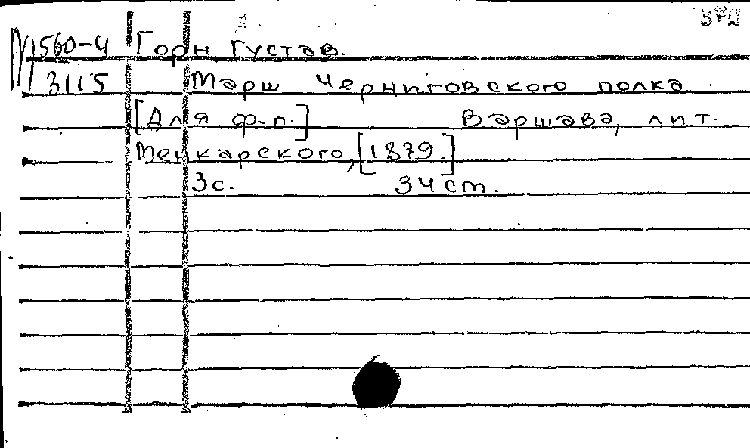 М 1560-4 Горн Густав.
3115 Марш Черниговского полка
[Для ф.-п.] Варшава, лит.
Менкарского, [1879.]
3 с. 34 см.